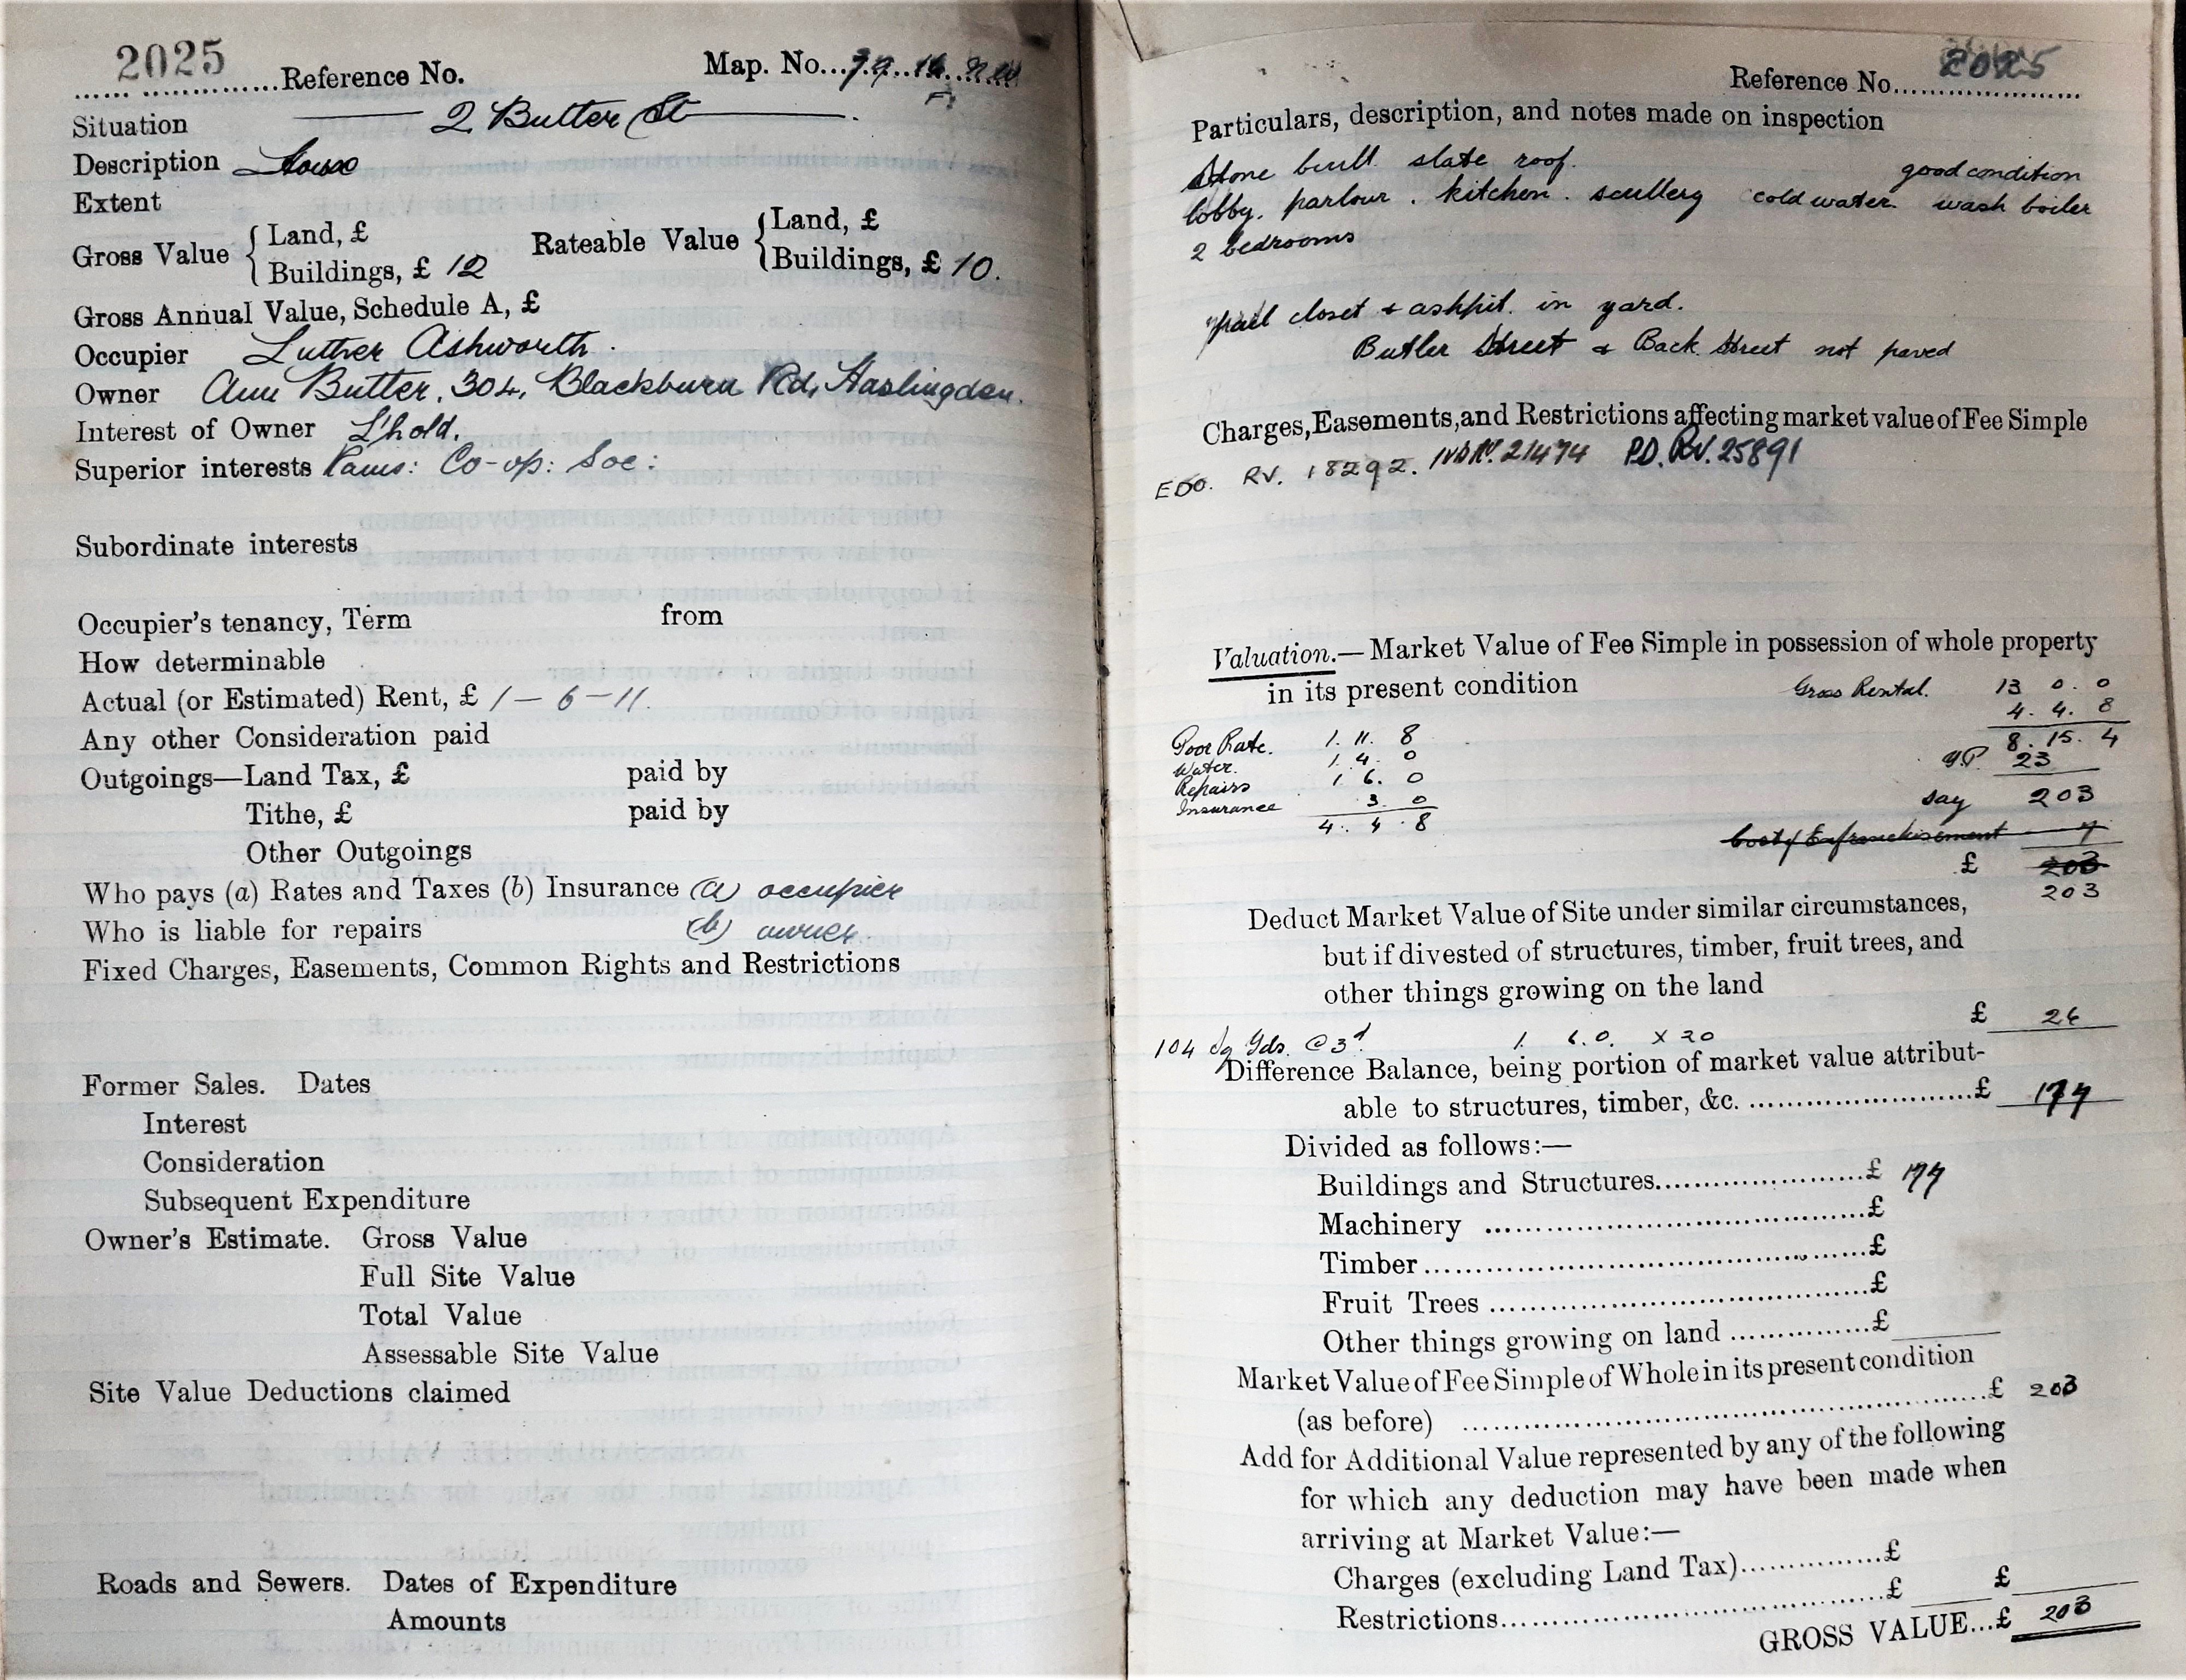 2025 Reference No. Map. No.
Situation 2 Butter St
Description House
Extent
Gross Value { Land, £
Buildings, £ 12
Rateable Value { Land, £
Buildings, £ 10.
Gross Annual Value, Schedule A, £
Occupier Luther Ashworth.
Owner Ann Butter, 304, Blackburn Rd, Haslingden.
Interest of Owner L'hold.
Superior interests Co-op: Soc:
Subordinate interests
Occupier's tenancy, Term from
How determinable
Actual (or Estimated) Rent, £ 1 – 6 – 11.
Any other Consideration paid
Outgoings—Land Tax, £ paid by
Tithe, £ paid by
Other Outgoings
Who pays (a) Rates and Taxes (b) Insurance (a) occupier
Who is liable for repairs (b) owner.
Fixed Charges, Easements, Common Rights and Restrictions
Former Sales. Dates
Interest
Consideration
Subsequent Expenditure
Owner's Estimate. Gross Value
Full Site Value
Total Value
Assessable Site Value
Site Value Deductions claimed
Roads and Sewers. Dates of Expenditure
Amounts
Reference No. 2025
Particulars, description, and notes made on inspection
Stone built. slate roof. good condition
lobby. parlour. kitchen. scullery cold water. wash boiler
2 bedrooms
pail closet + ashpit. in yard.
Butler Street & Back Street not paved
Charges, Easements, and Restrictions affecting market value of Fee Simple
EDO. RV. 18292. IVD RV. 21474 P.D. RV. 25891
Valuation.— Market Value of Fee Simple in possession of whole property
in its present condition
Gross Rental. 13 0. 0
4. 4. 8
8. 15. 4
Y.P. 23
say 203
Poor Rate. 1. 11. 8
Water. 1. 4. 0
Repairs 1 6. 0
Insurance 3. 0
4. 4. 8
Cost of Enfranchisement 7
£ 203
203
Deduct Market Value of Site under similar circumstances,
but if divested of structures, timber, fruit trees, and
other things growing on the land
£ 26
104 Sq Yds. @ 3d. 1. 6. 0. x 20
Difference Balance, being portion of market value attribut-
able to structures, timber, &c. £ 177
Divided as follows:—
Buildings and Structures £ 177
Machinery £
Timber £
Fruit Trees £
Other things growing on land £
Market Value of Fee Simple of Whole in its present condition
(as before) £ 203
Add for Additional Value represented by any of the following
for which any deduction may have been made when
arriving at Market Value:—
Charges (excluding Land Tax) £
Restrictions £ £
GROSS VALUE...£ 203